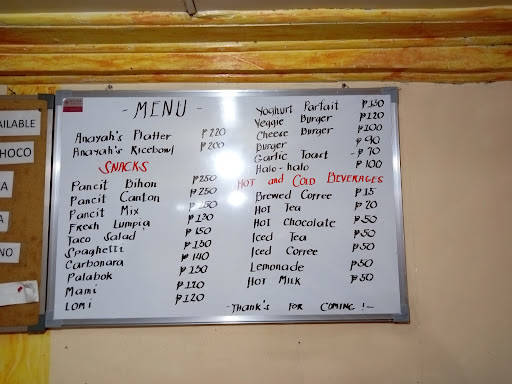 - MENU -
Anayah's Platter ₱220
Anayah's Ricebowl ₱200
SNACKS
Pancit Bihon ₱250
Pancit Canton ₱250
Pancit Mix ₱250
Fresh Lumpia ₱130
Taco Salad ₱150
Spaghetti ₱130
Carbonara ₱140
Palabok ₱130
Mami ₱120
Lomi ₱120
Yoghurt Parfait ₱150
Veggie Burger ₱120
Cheese Burger ₱100
Burger ₱90
Garlic Toast - ₱70
Halo-halo ₱100
HOT and COLD BEVERAGES
Brewed Coffee ₱15
Hot Tea ₱20
Hot Chocolate ₱50
Iced Tea ₱50
Iced Coffee ₱50
Lemonade ₱50
Hot Milk ₱50
-Thank's For Coming!-
AILABLE
HOCO
A
A
NO